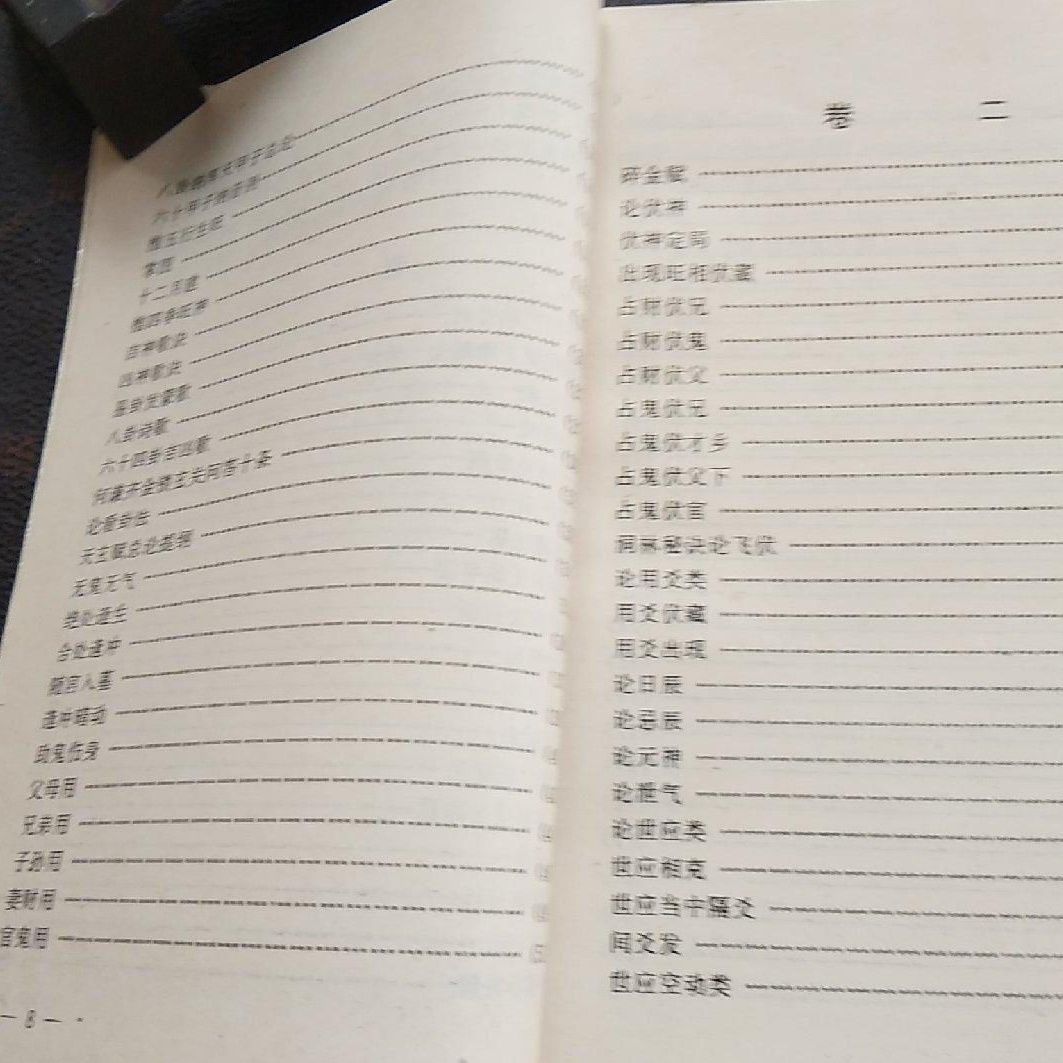 六十甲子纳音
推五行生旺
十二月建
推四季旺神
八卦诗歌
六十四卦吉凶歌
何知齐金锁玄关问答十条
论看卦法
天玄赋总论提纲
无鬼无气
绝处逢生
合处逢冲
随官入墓
逢冲暗动
助鬼伤身
父母用
兄弟用
子孙用
妻财用
官鬼用
— 8 —
卷 二
碎金赋
论伏神
伏神定局
出现旺相伏藏
占财伏兄
占财伏鬼
占财伏父
占鬼伏兄
占鬼伏才乡
占鬼伏父下
占鬼伏官
洞林秘诀论飞伏
论用爻类
用爻伏藏
用爻出现
论日辰
论忌辰
论元神
论泄气
论世应类
世应相克
世应当中隔爻
间爻发
世应空动类